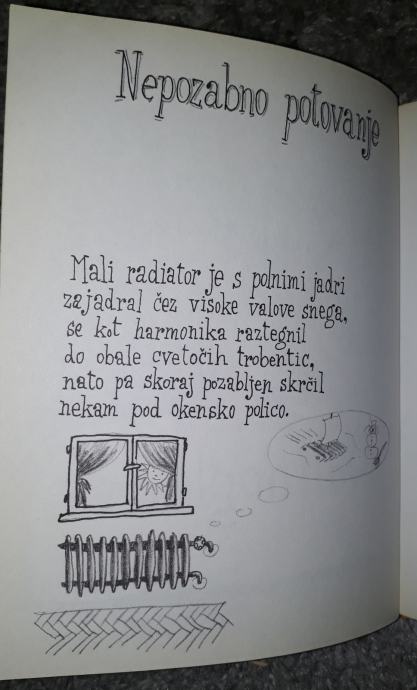 Nepozabno potovanje
Mali radiator je s polnimi jadri
zajadral čez visoke valove snega,
se kot harmonika raztegnil
do obale cvetočih trobentic,
nato pa skoraj pozabljen skrčil
nekam pod okensko polico.